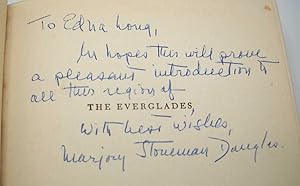 To Edna Long,
In hopes this will prove
a pleasant introduction to
all this region of
THE EVERGLADES,
with best wishes,
Marjory Stoneman Douglas.